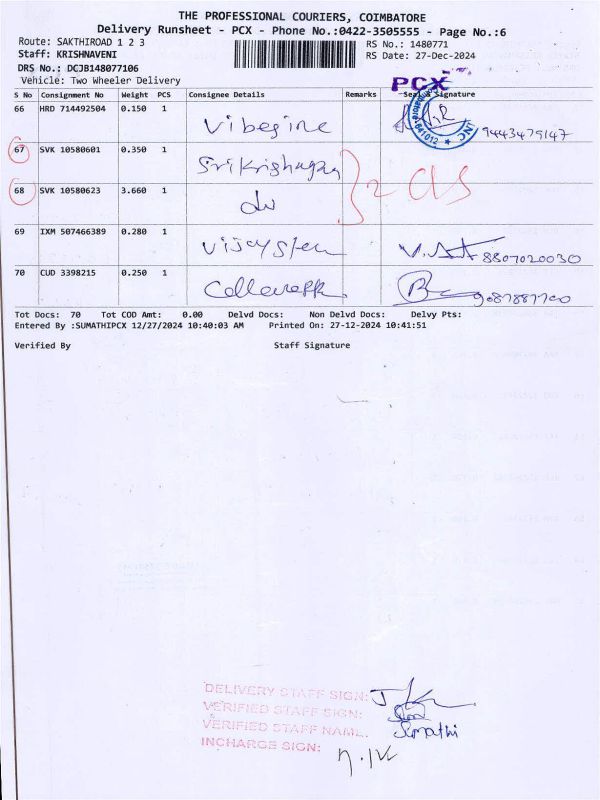 THE PROFESSIONAL COURIERS, COIMBATORE
Delivery Runsheet - PCX - Phone No.:0422-3505555 - Page No.:6
Route: SAKTHIROAD 1 2 3
RS No.: 1480771
Staff: KRISHNAVENI
RS Date: 27-Dec-2024
DRS No.: DCJB148077106
Vehicle: Two Wheeler Delivery
PCX
S No Consignment No Weight PCS Consignee Details Remarks Seal Signature
66 HRD 714492504 0.150 1 9443479147
641012
67 SVK 10580601 0.350 1
68 SVK 10580623 3.660 1 do
69 IXM 507466389 0.280 1 8807020030
70 CUD 3398215 0.250 1
Tot Docs: 70 Tot COD Amt: 0.00 Delvd Docs: Non Delvd Docs: Delvy Pts:
Entered By :SUMATHIPCX 12/27/2024 10:40:03 AM Printed On: 27-12-2024 10:41:51
Verified By Staff Signature
DELIVERY STAFF SIGN:
VERIFIED STAFF SIGN:
VERIFIED STAFF NAME: Sumathi
INCHARGE SIGN: